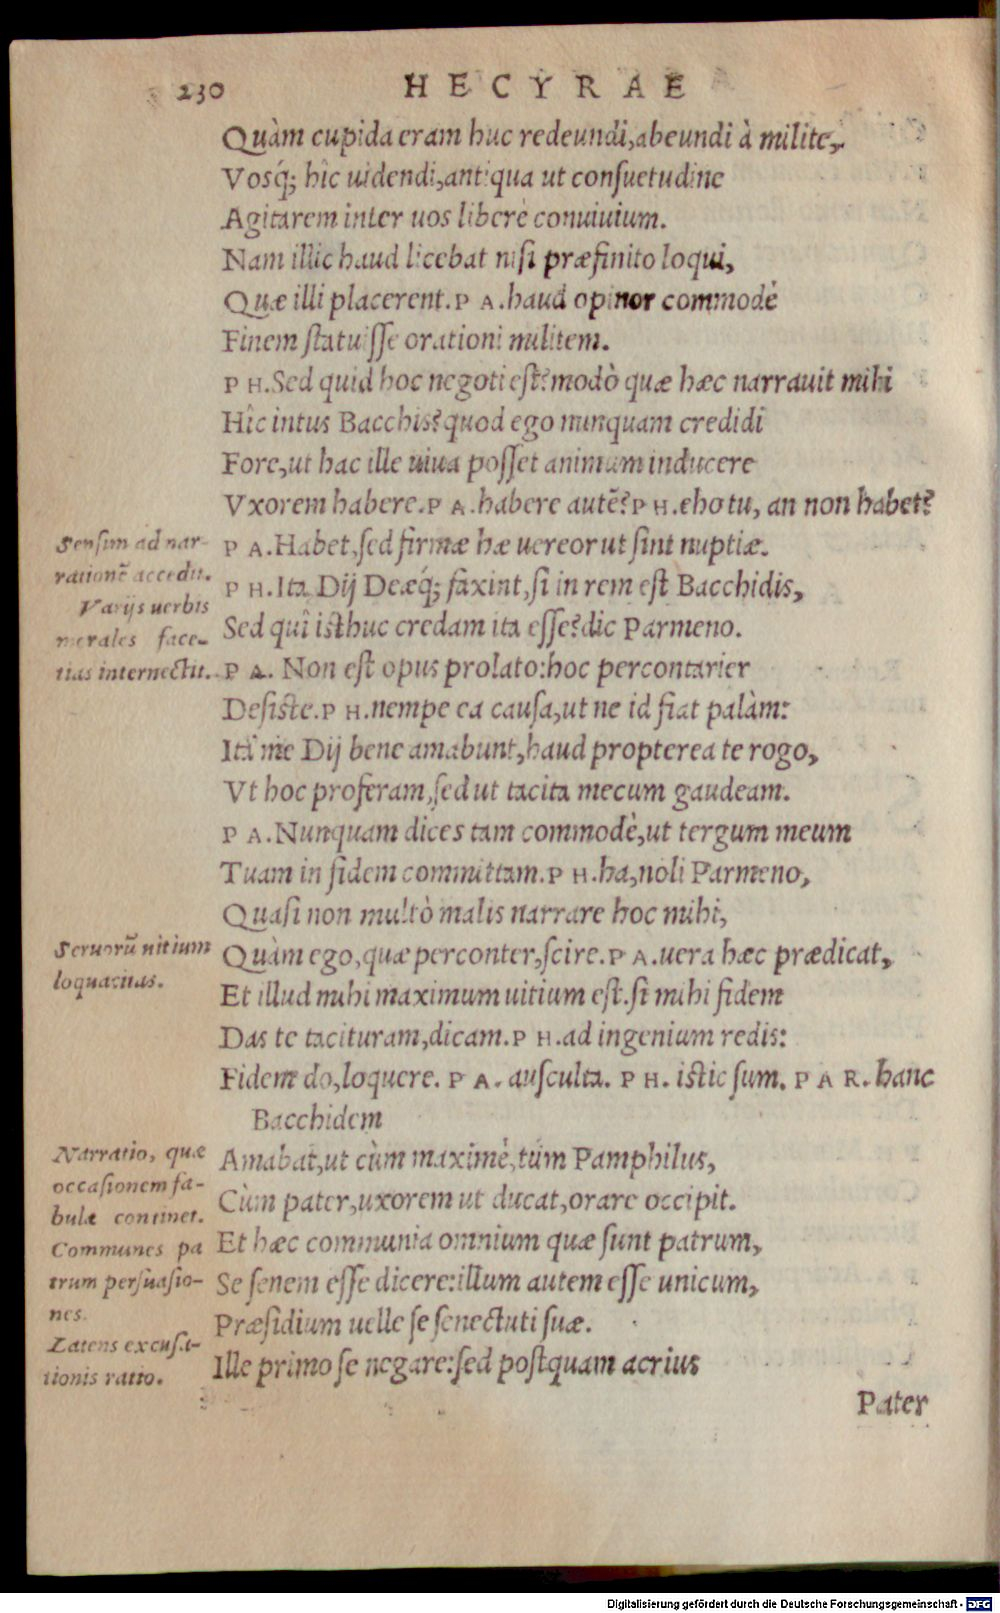 230
HECYRAE
Quàm cupida eram huc redeundi, abeundi à milite,
Vosq́; hîc uidendi, antiqua ut consuetudine
Agitarem inter uos liberè conuiuium.
Nam illic haud licebat nisi præfinito loqui,
Quæ illi placerent. PA. haud opinor commodè
Finem statuisse orationi militem.
PH. Sed quid hoc negoti est? modò quæ hæc narrauit mihi
Hîc intus Bacchis? quod ego nunquam credidi
Fore, ut hac ille uiua posset animum inducere
Vxorem habere. PA. habere autē? PH. eho tu, an non habet?
PA. Habet, sed firmæ hæ uereor ut sint nuptiæ.
PH. Ita Dij Deæq́; faxint, si in rem est Bacchidis,
Sed quî isthuc credam ita esse? dic Parmeno.
PA. Non est opus prolato: hoc percontarier
Desiste. PH. nempe ea causa, ut ne id fiat palàm:
Ita me Dij bene amabunt, haud propterea te rogo,
Vt hoc proferam, sed ut tacita mecum gaudeam.
PA. Nunquam dices tam commodè, ut tergum meum
Tuam in fidem committam. PH. ha, noli Parmeno,
Quasi non multò malis narrare hoc mihi,
Quàm ego, quæ perconter, scire. PA. uera hæc prædicat,
Et illud mihi maximum uitium est. si mihi fidem
Das te tacituram, dicam. PH. ad ingenium redis:
Fidem do, loquere. PA. ausculta. PH. istic sum. PAR. hanc
Bacchidem
Amabat, ut cùm maximè, tùm Pamphilus,
Cùm pater, uxorem ut ducat, orare occipit.
Et hæc communia omnium quæ sunt patrum,
Se senem esse dicere: illum autem esse unicum,
Præsidium uelle se senectuti suæ.
Ille primo se negare: sed postquam acrius
Pater
Sensim ad nar-
rationē accedit.
Varijs uerbis
morales face-
tias internectit.
Seruorū uitium
loquacitas.
Narratio, quæ
occasionem fa-
bulæ continet.
Communes pa
trum persuasio-
nes.
Latens excusa-
tionis ratio.
Digitalisierung gefördert durch die Deutsche Forschungsgemeinschaft - DFG